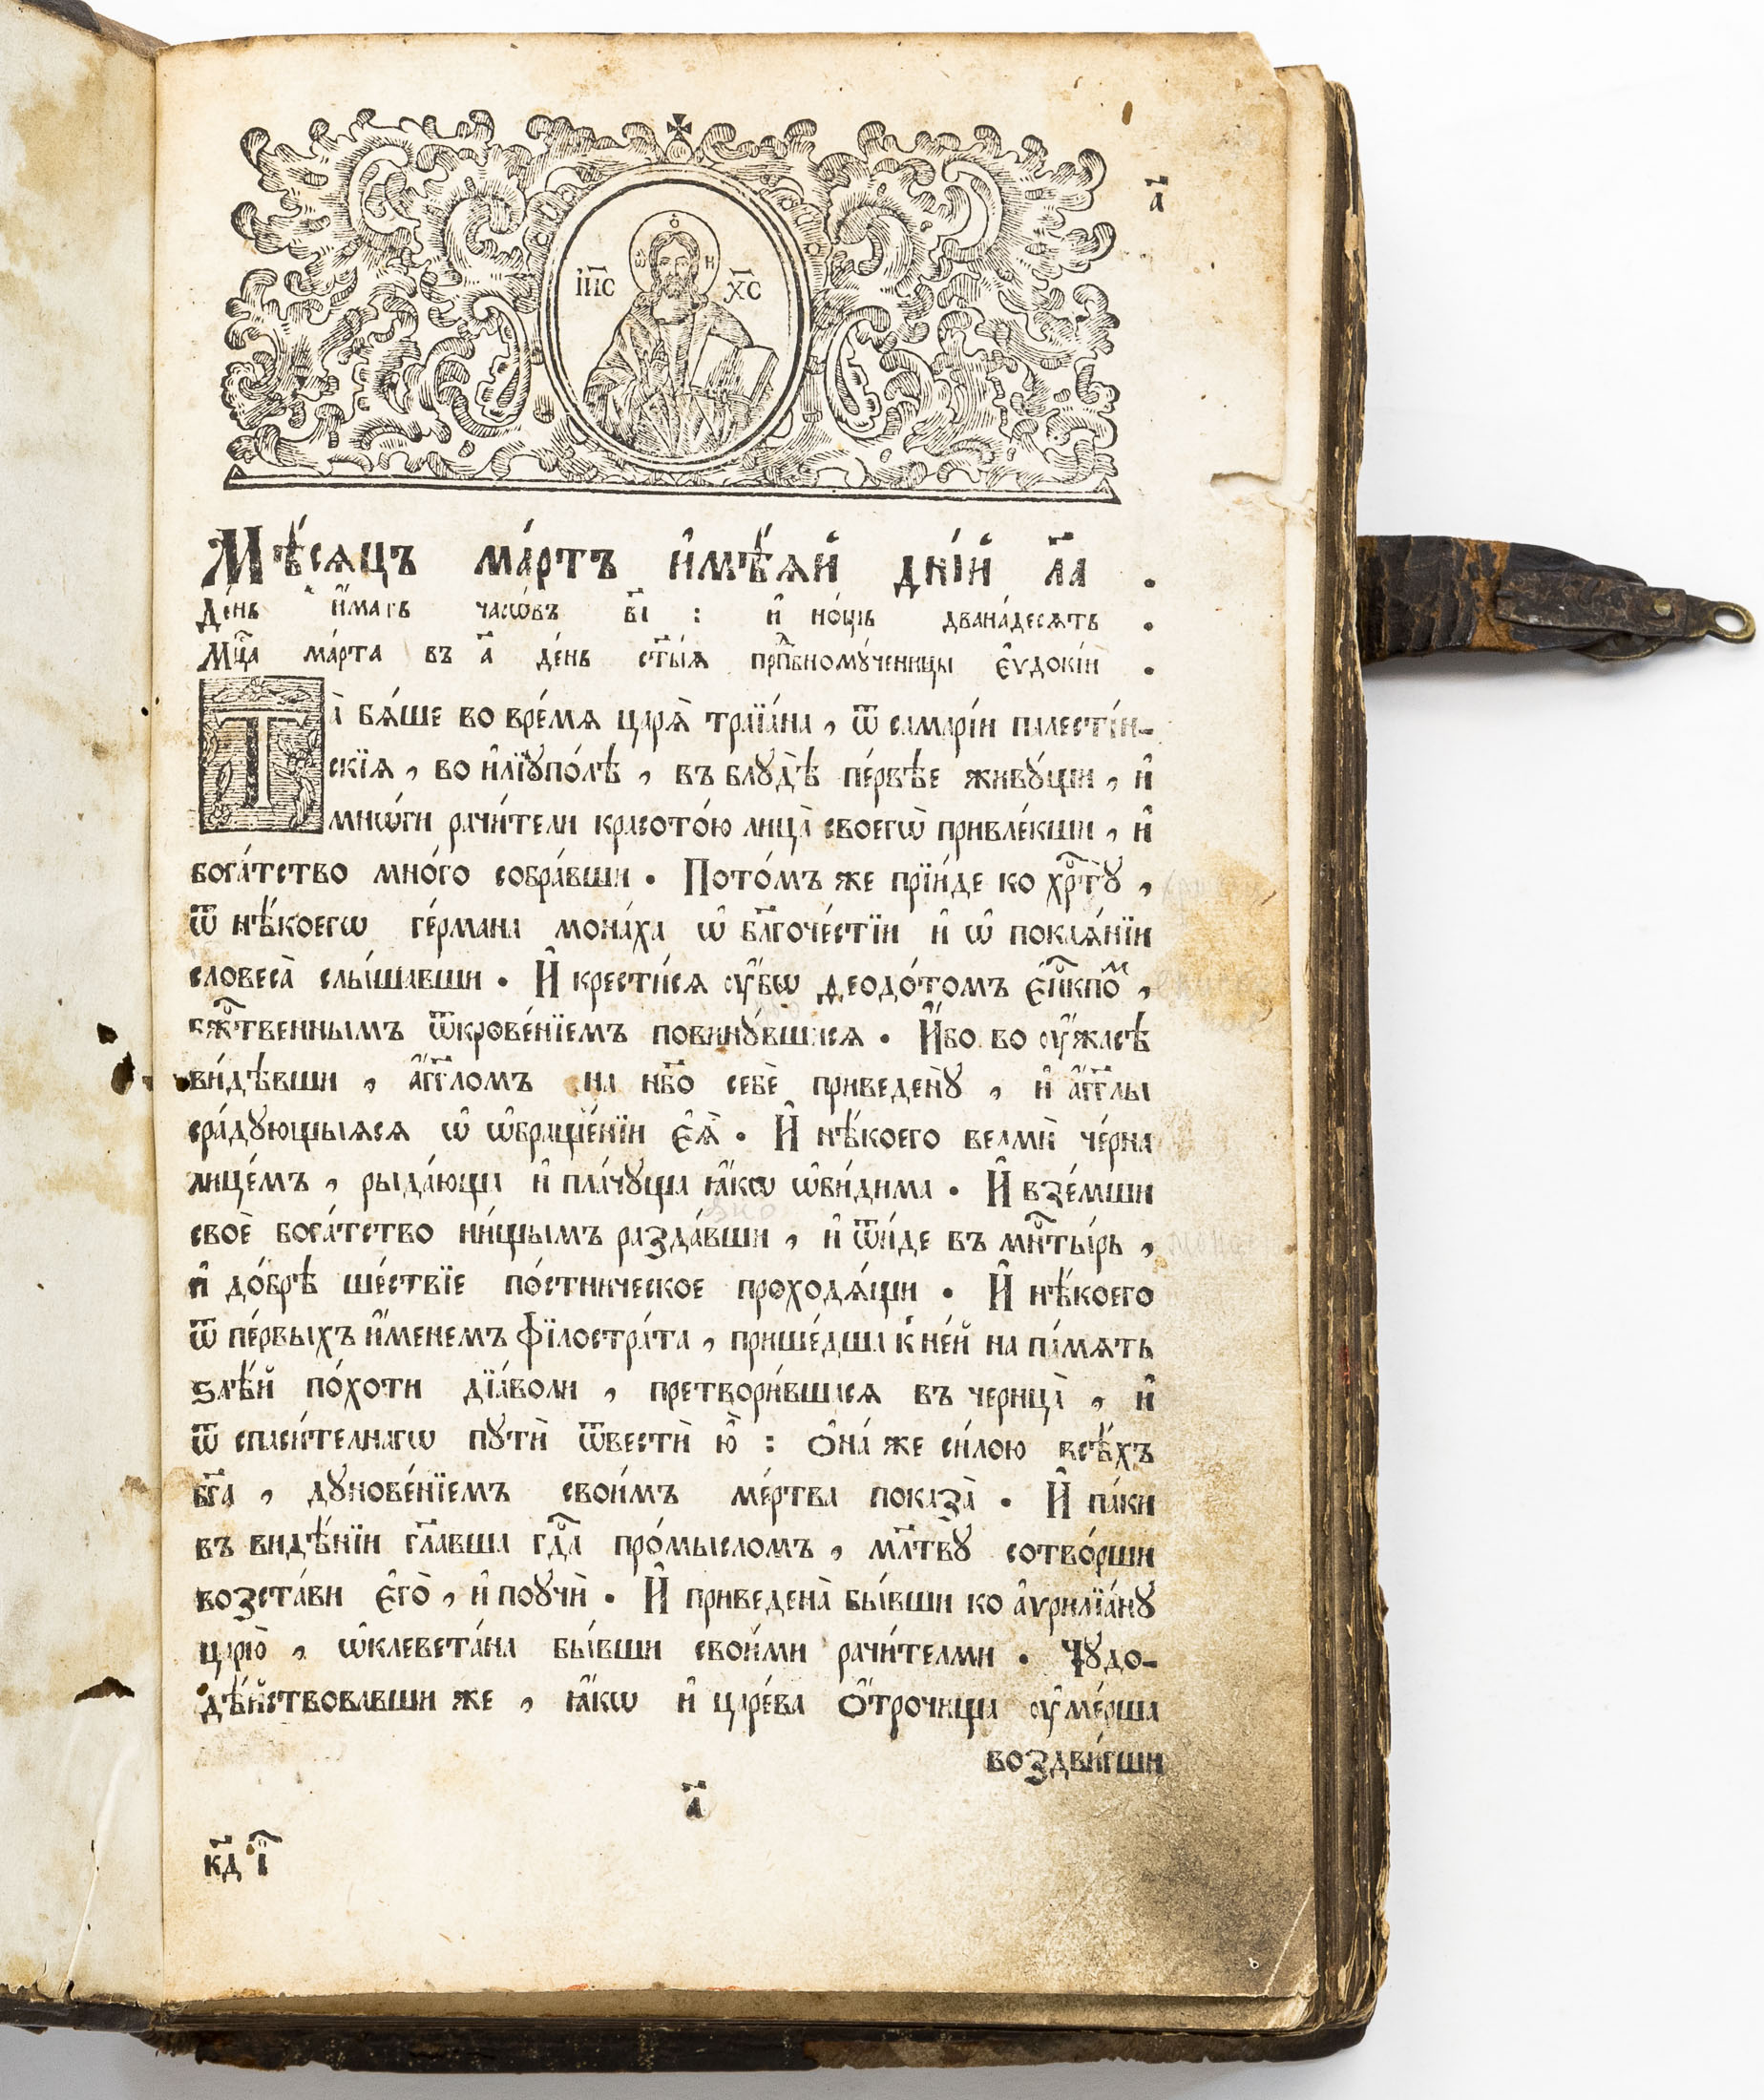 а҃
і҆и҃с х҃с
ѽ о҆ н
Мѣ́сяцъ ма́ртъ и҆мѣ́ѧй дні́й л҃а .
Де́нь и҆́мать часѡ́въ в҃і : и҆ но́щь двана́десѧть .
Мц҃а ма́рта въ а҃ де́нь ст҃ы́ѧ прпⷣбному́ченицы є҆ѵдокі́и .
Та̀ бѧ́ше во вре́мѧ царѧ̀ траїа́на , ѿ самарі́и палесті́н-
скїѧ , во и҆лїꙋпо́лѣ , въ блꙋ́дѣ пе́рвѣе живꙋ́щи , и҆
мнѡ́ги рачи́тели красото́ю лица̀ своегѡ̀ привле́кши , и҆
бога́тство мно́го собра́вши . Пото́мъ же прїи́де ко хрⷭ҇тꙋ̀ ,
ѿ нѣ́коегѡ ге́рмана мона́ха ѡ҆ бл҃гоче́стїи и҆ ѡ҆ покаѧ́нїи
словеса̀ слы́шавши . И҆ крести́сѧ ᲂу҆́бѡ деодо́томъ є҆пⷭ҇кпоⷨ ,
бжⷭ҇твеннымъ ѿкрове́нїемъ повинꙋ́вшисѧ . И҆́бо во ᲂу҆́жасѣ
ви́дѣвши , а҆́гг҃ломъ на нб҃о себѐ приведе́нꙋ , и҆ а҆́гг҃лы
сра́дꙋющыѧсѧ ѡ҆ ѡ҆браще́нїи є҆ѧ̀ . И҆ нѣ́коего велмѝ че́рна
лице́мъ , рыда́юща и҆ пла́чꙋща ꙗ҆́кѡ ѡ҆би́дима . И҆ взе́мши
своѐ бога́тство ни́щымъ разда́вши , и҆ ѿи́де въ мнⷭ҇ты́рь ,
и҆ до́брѣ ше́ствїе по́стническое проходѧ́щи . И҆ нѣ́коего
ѿ пе́рвыхъ и҆́менемъ фїлостра́та , прише́дша к̾ не́й на па́мѧть
ѕлѣ́й по́хоти дїа́воли , претвори́вшасѧ въ чернца̀ , и҆
ѿ спаси́телнагѡ пꙋтѝ ѿвестѝ ю҆̀ : ѻ҆на́ же си́лою всѣ́хъ
бг҃а , дꙋнове́нїемъ свои́мъ ме́ртва показа̀ . И҆ па́ки
въ видѣ́нїи гл҃авша гдⷭ҇а про́мысломъ , мл҃твꙋ сотво́рши
возста́ви є҆го̀ , и҆ поꙋчѝ . И҆ приведена̀ бы́вши ко а҆ѵрилїа́нꙋ
царю̀ , ѡ҆клевета́на бы́вши свои́ми рачи́телми . Чꙋдо-
дѣ́йствовавши же , ꙗ҆́кѡ и҆ царе́ва ѻ҆́трочища ᲂу҆ме́рша
воздви́гши
а҃
к҃д і҃